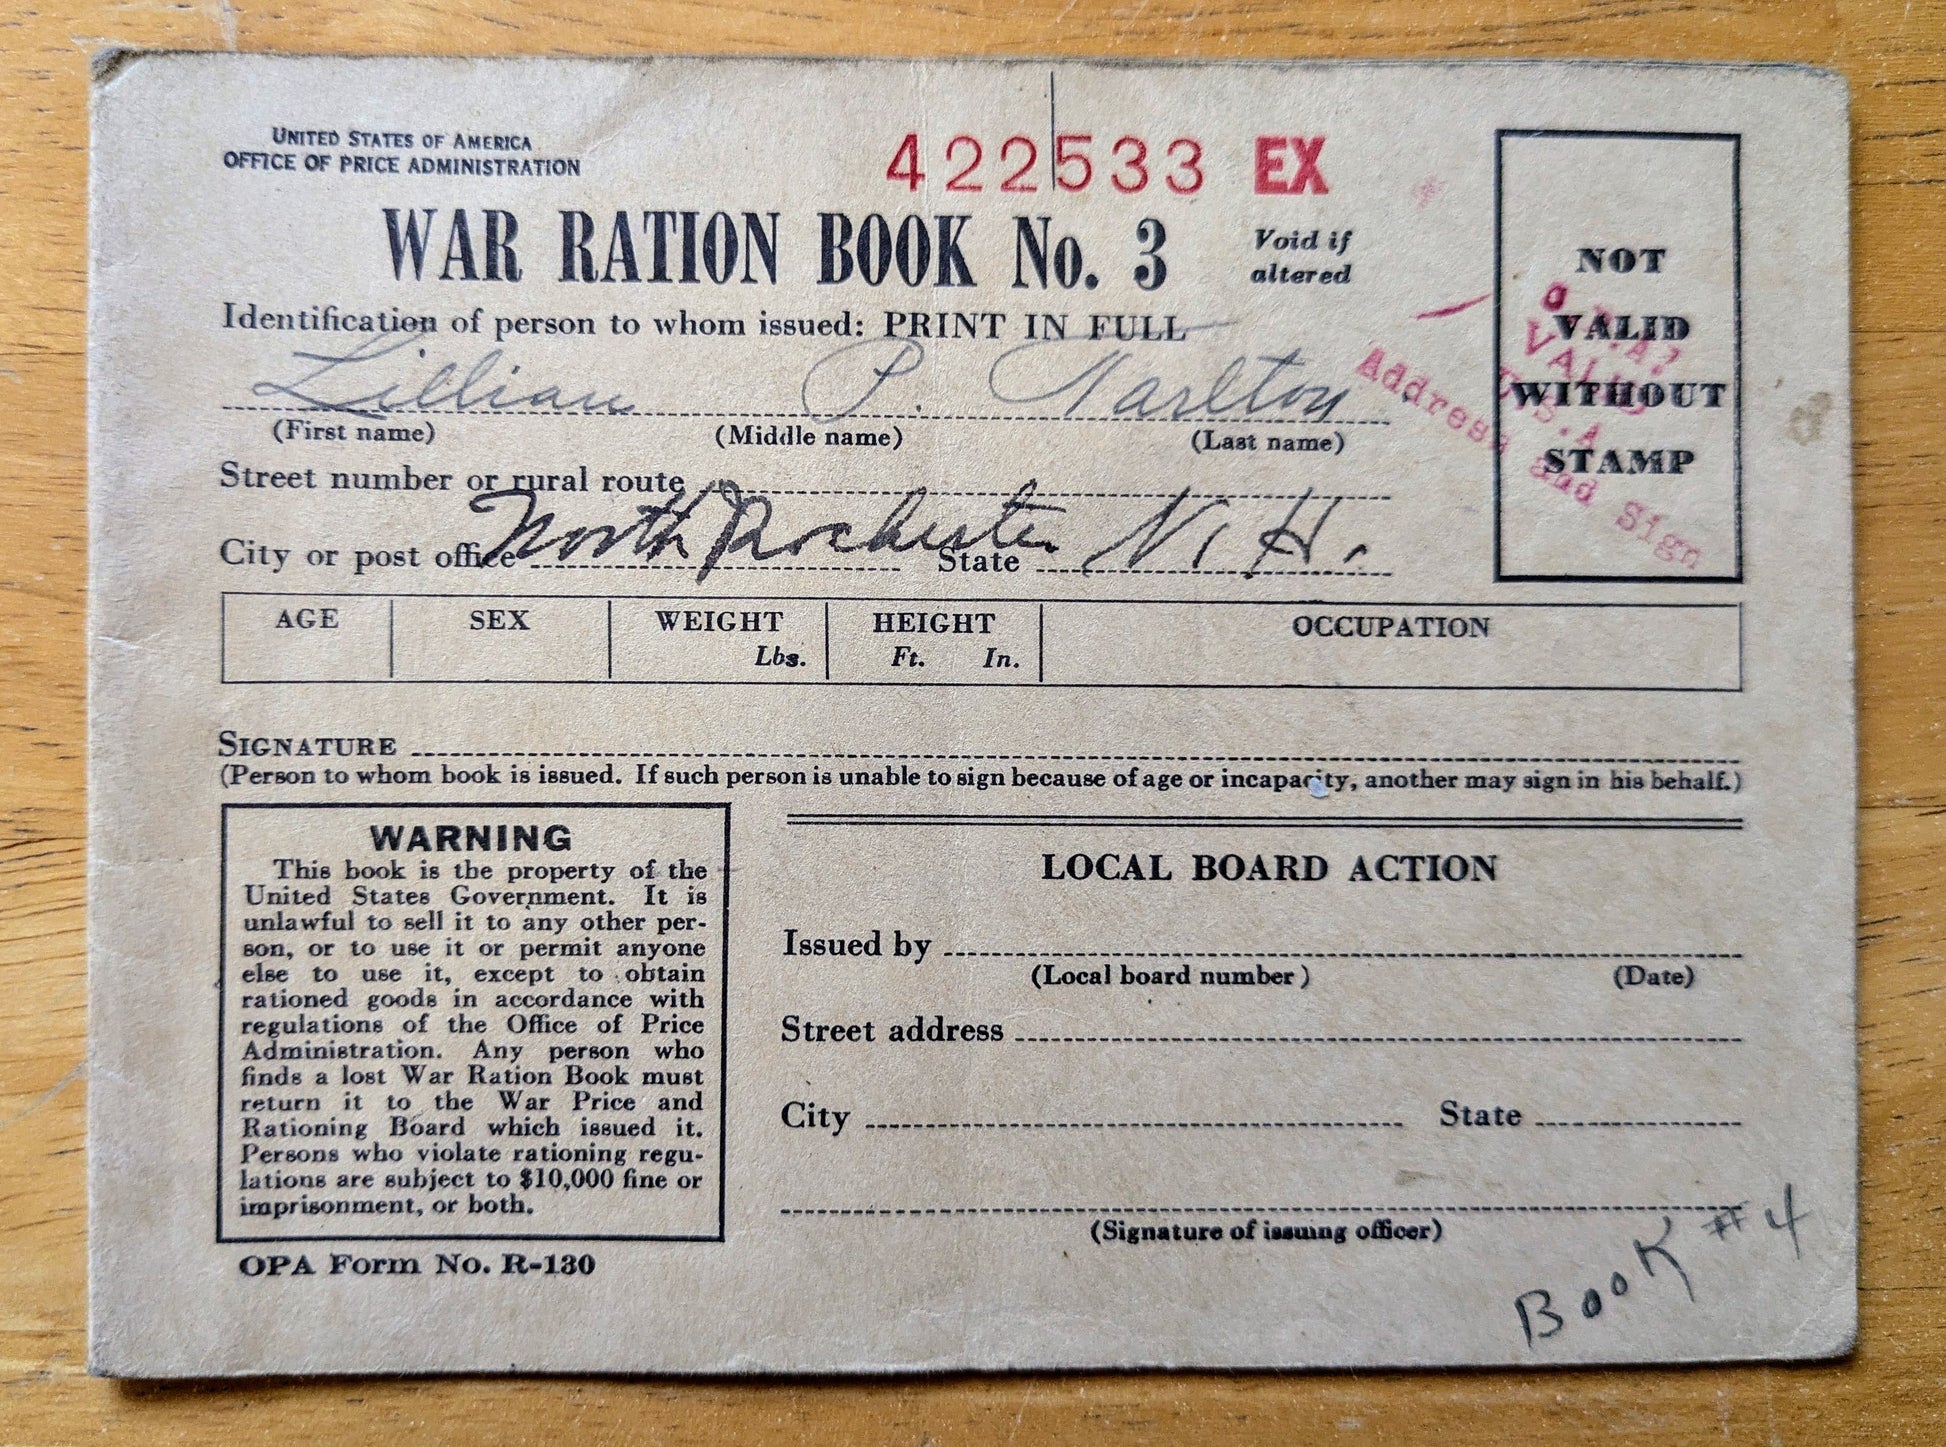 UNITED STATES OF AMERICA
OFFICE OF PRICE ADMINISTRATION
422533 EX
WAR RATION BOOK No. 3
Void if
altered
Identification of person to whom issued: PRINT IN FULL
Lillian P. Tarlton
(First name) (Middle name) (Last name)
Street number or rural route
City or post office North Rochester State N. H.
NOT
VALID
WITHOUT
STAMP
VALID
U.S.A
Address and Sign
AGE SEX WEIGHT HEIGHT OCCUPATION
Lbs. Ft. In.
SIGNATURE
(Person to whom book is issued. If such person is unable to sign because of age or incapacity, another may sign in his behalf.)
WARNING
This book is the property of the
United States Government. It is
unlawful to sell it to any other per-
son, or to use it or permit anyone
else to use it, except to obtain
rationed goods in accordance with
regulations of the Office of Price
Administration. Any person who
finds a lost War Ration Book must
return it to the War Price and
Rationing Board which issued it.
Persons who violate rationing regu-
lations are subject to $10,000 fine or
imprisonment, or both.
OPA Form No. R-130
LOCAL BOARD ACTION
Issued by
(Local board number) (Date)
Street address
City State
(Signature of issuing officer)
Book #4